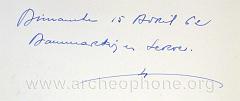 Dimanche 15 Avril 62
Dammartin en Serve.
© www.archeophone.org